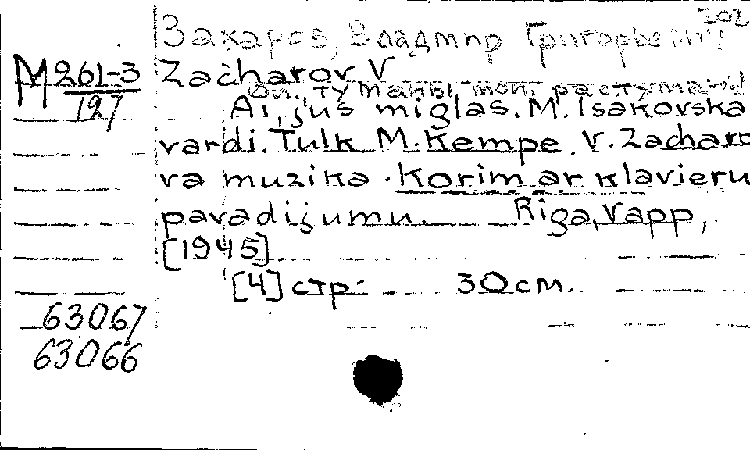 202
Захаров, Владмир Григорьевич
М 261-3
127
Zacharov V
Ой, туманы мои, растуманы
Ai, jūs miglas. M. Isakovska
vardi. Tulk M. Kempe. V. Zacharo
va muzika. Korim ar klavieru
pavadijumu. Riga, Vapp,
[1945]
[4] стр. 30 см.
63067
63066